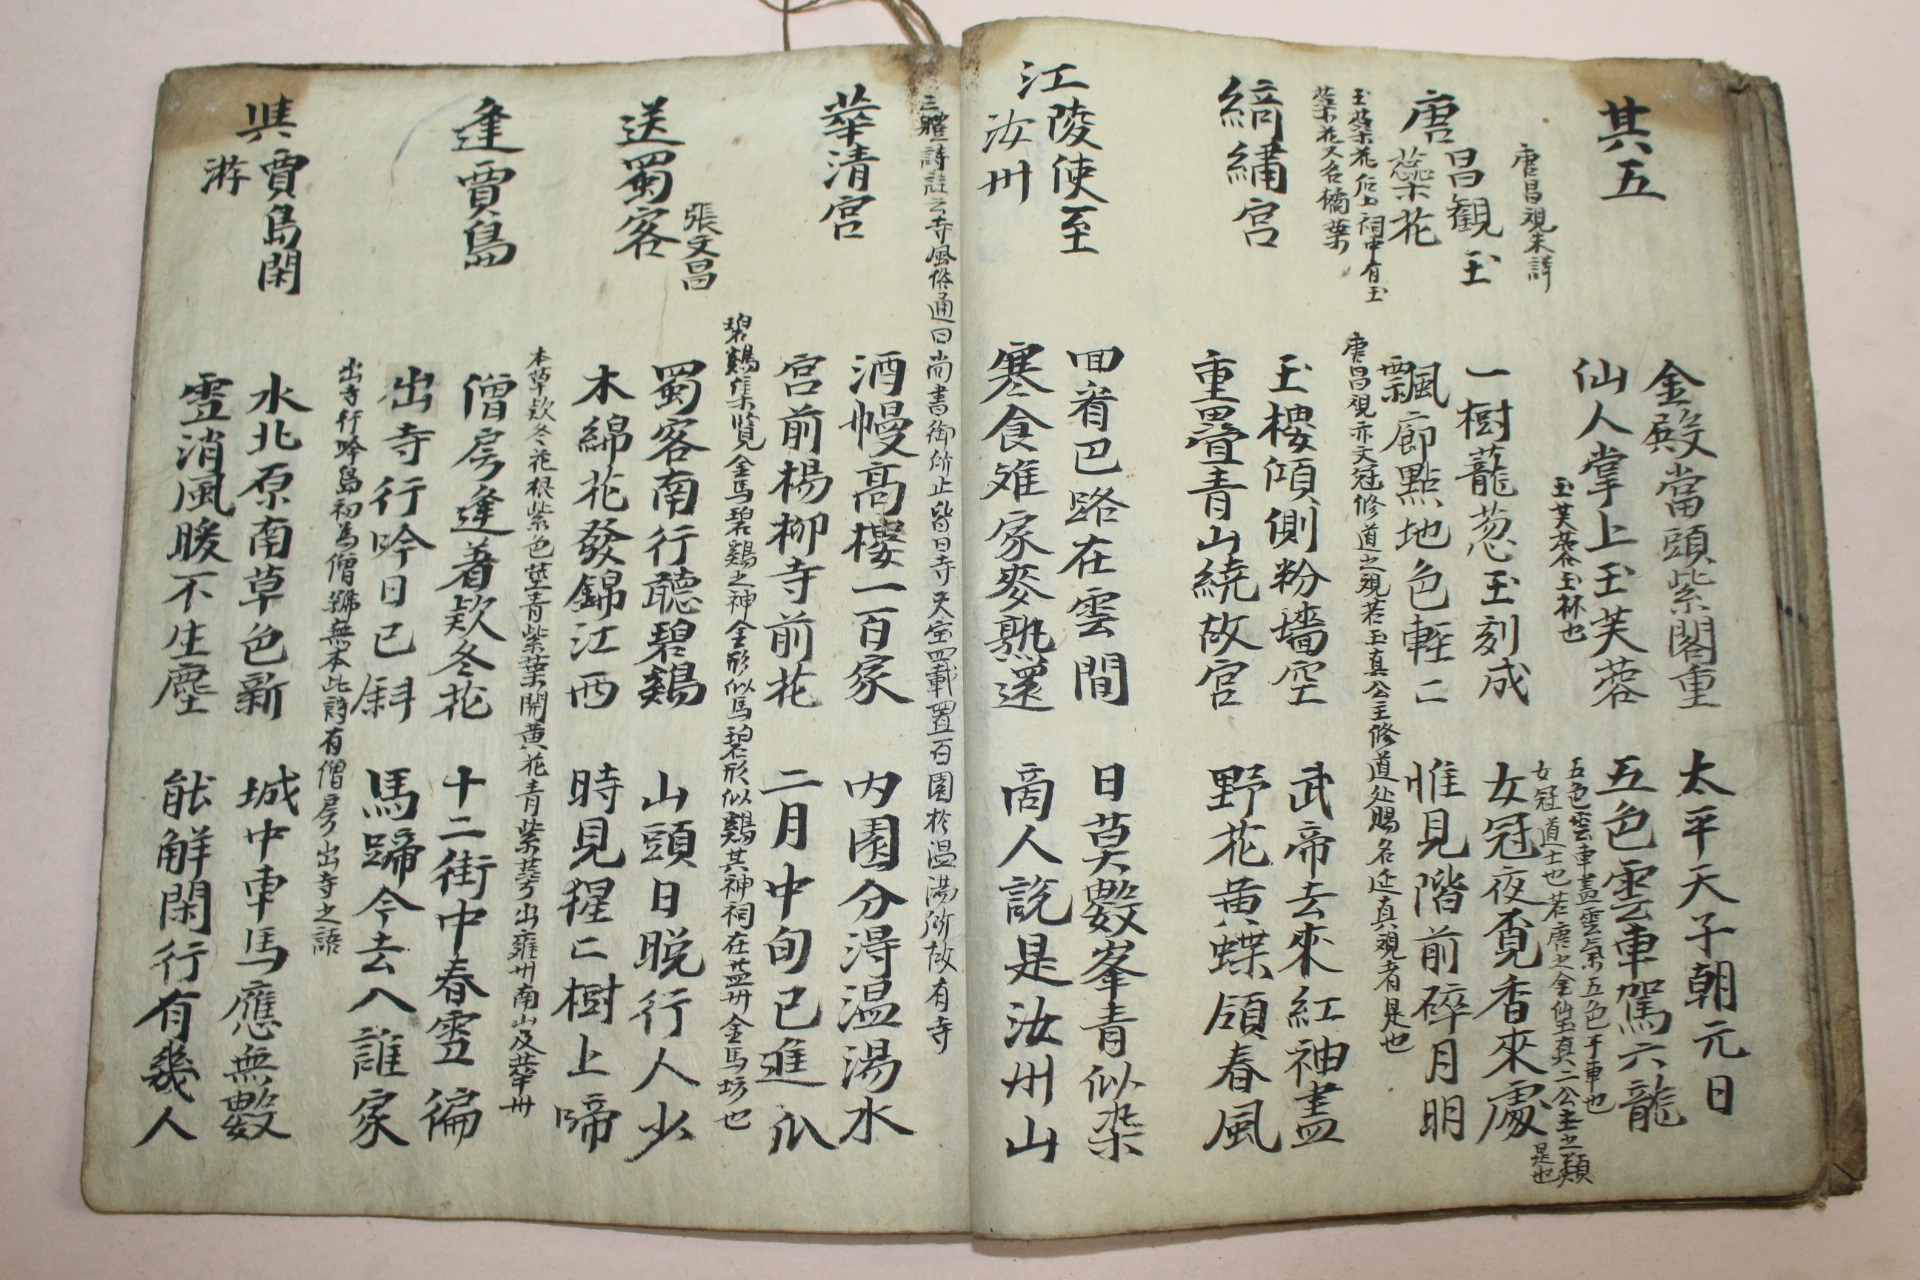 其五
金殿當頭紫閣重
仙人掌上玉芙蓉
太平天子朝元日
五色雲車駕六龍
玉芙蓉玉杯也
五色雲車畫雲氣五色于車也
女冠道士也若唐之金仙玉眞二公主之類是也
唐昌觀玉
蘂花
一樹蘢葱玉刻成
飄廊點地色輕〻
女冠夜覓香來處
惟見階前碎月明
玉蘂花后土祠中有玉
蘂花又名瓊蘂
綺繡宮
玉樓傾側粉墻空
重疊青山繞故宮
武帝去來紅袖盡
野花黃蝶領春風
江陵使至
汝州
回看巴路在雲間
寒食離家麥熟還
日莫數峯青似染
商人說是汝州山
三體詩註云寺風俗通曰尚書御所止皆曰寺天宝
華清宮
酒幔高樓一百家
宮前楊柳寺前花
内園分淂温湯水
二月中旬已進瓜
碧鷄集覽金馬碧鷄之神金形似馬碧形似鷄其神祠在益州金馬坊也
張文昌
送蜀客
蜀客南行聽碧鷄
木綿花發錦江西
山頭日晚行人少
時見猩〻樹上啼
本草欵冬花根紫色莖青紫葉開黄花青紫萼出雍州南山及華州
逢賈島
僧房逢著欵冬花
出寺行吟日已斜
十二街中春雪徧
馬蹄今去入誰家
出寺行吟島初爲僧號無本此詩有僧房出寺之語
與賈島閑
游
水北原南草色新
雪消風暖不生塵
城中車馬應無數
能解閑行有幾人